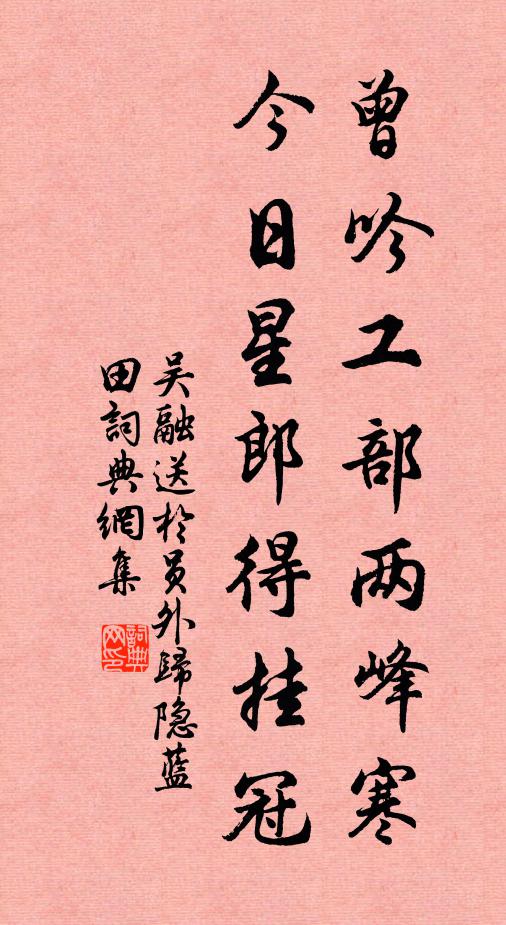 曾吟工部两峰寒
今日星郎得挂冠
吴融送於员外歸隐蓝
田詞典網集
詞典网印